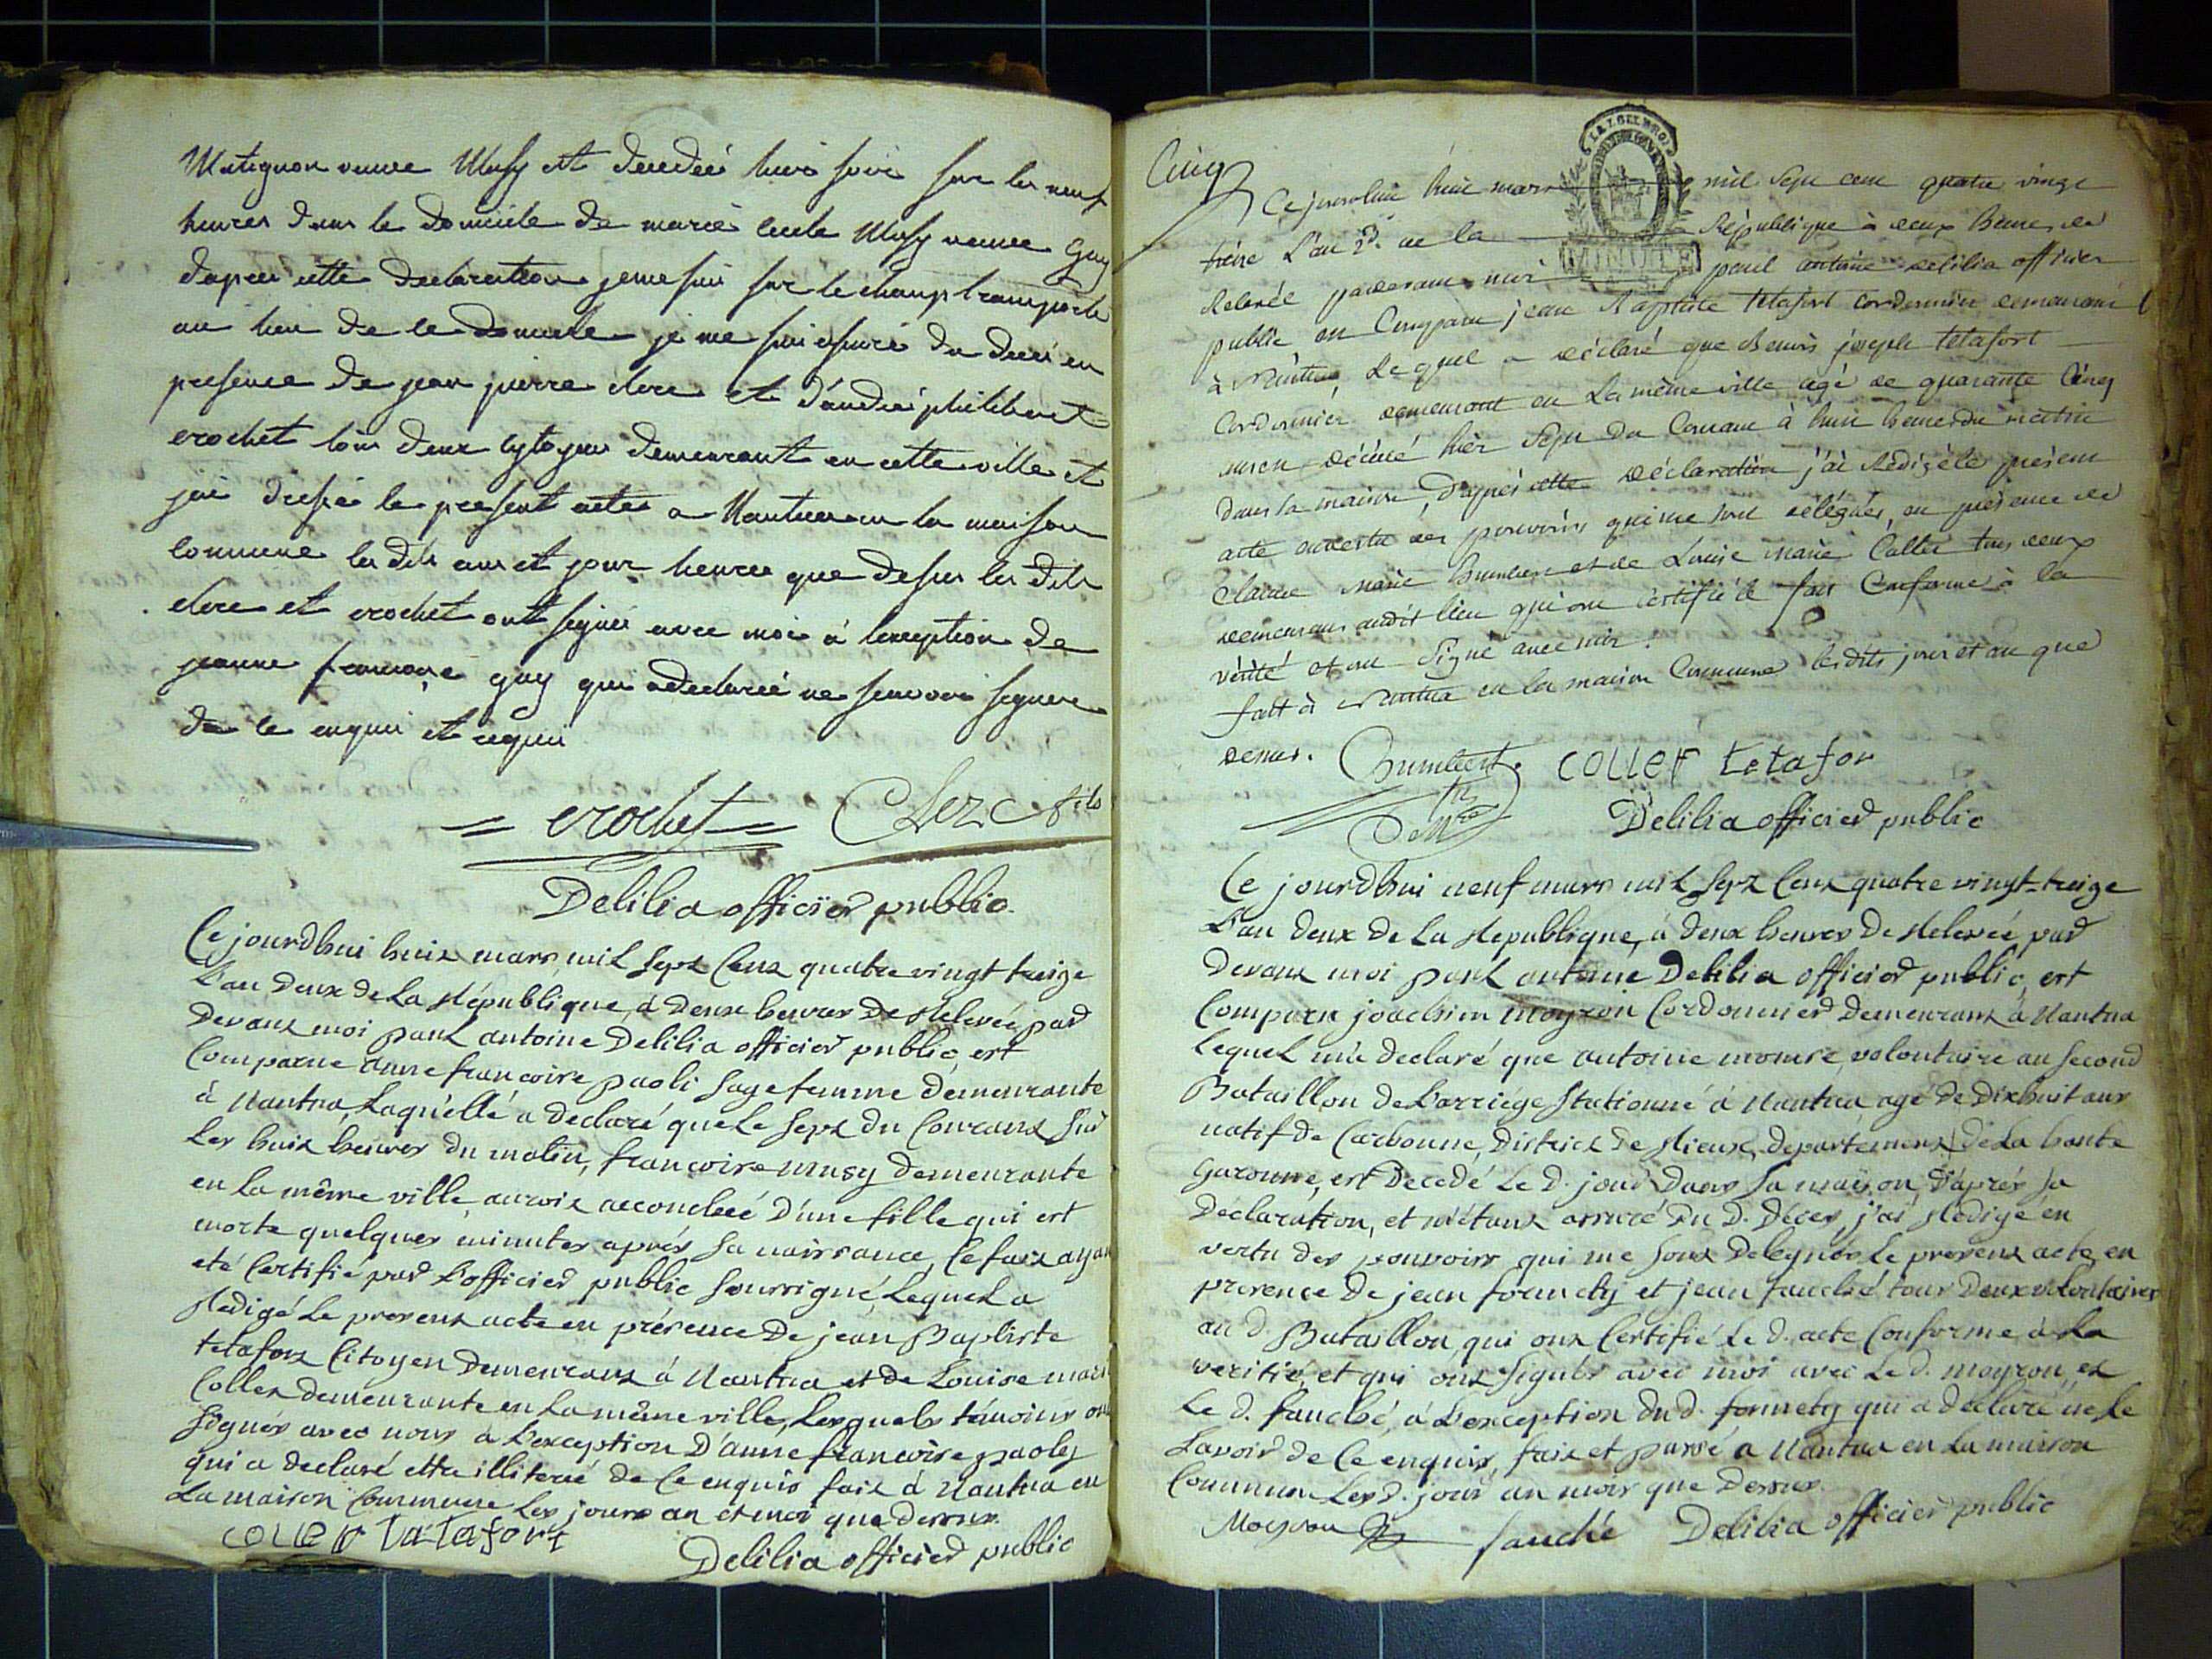 Matignon veuve Musy est decedeé hier soir sur les neuf
heures dans le domicile de marie cecile Musy veuve Guy
dapres cette declaration je me suis sur le champ transporté
au lieu de ce domicile je me suis assuré du deces en
presence de jean pierre clerc et d'andré philibert
crochet tous deux cytoyens demeurant en cette ville et
jai dressé le present acte a Nantua en la maison
commune les dits an et jour heures que dessus les dits
clerc et crochet ont signés avec moi à lexception de
jeanne francoise guy qui a declaréé ne scavoir signer
de ce enquis et requis
= crochet = Clerc fils
Delilia officier public.
Ce jourdhui huit mars mil Sept Cent quatre vingt treize
L'an Deux de La République, à Deux heures De Relevée par
Devant moi paul antoine Delilia officier public, est
Comparue anne francoise paoli Sage femme Demeurante
à Nantua, Laquélle a declaré que Le Sept du Courant Sur
Les huit heures du matin, francoise musy Demeurante
en La même ville auroit accouchée D'une fille qui est
morte quelques minutes après Sa naissance, Ce fait ayant
eté Certifié par L'officier public Soussigné, Lequel a
Redigé Le present acte en présence De jean Baptiste
tetafort Citoyen Demeurant à Nantua et de Louise marie
Collet demeurante en La même ville, Lesquels témoins ont
Signés avec nous à L'exception D'anne francoise paoly
qui a declaré etre illiteré de Ce enquis fait à Nantua en
La maison Commune Les jours an et mois que Dessus.
COLLET tatafort
Delilia officier public
Cinq
Ce jourdhui huit mars mil Sept cent quatre vingt
treize L'an 2d. de la République à deux heures de
Relevée pardevant moi paul antoine delilia officier
public est Comparu jean Baptiste tetafort cordonnier demeurant
à Nantua, Lequel a déclaré que joseph tetafort
Cordonnier demeurant en La même ville agé de quarante Cinq
ans est décédé hier Sept du Courant à huit heures du matin
dans sa maison, D'après cette déclaration j'ai Rédigé le présent
acte en vertu des pouvoirs qui me sont délégués, en présence de
Claude Marie humbert et de Louise marie Collet tous deux
demeurans audit lieu qui ont certifié le fait Conforme à la
vérité et ont Signé avec moi.
fait à Nantua en la maison Commune lesdits jour et an que
dessus. humbert. COLLET tetafor
Delilia officier public
Ce jourdhui neuf mars mil Sept Cent quatre vingt-treize
L'an Deux De La Republique, à Deux heures De Relevée par
Devant moi paul antoine Delilia officier public, est
Comparu joachim moyron Cordonnier Demeurant à Nantua
Lequel m'a declaré que antoine volontaire au Second
Bataillon De L'arriege Stationné à Nantua agé De Dixhuit ans
natif de Carbonne, District De Rieux, departement De La haute
Garonne, est Decedé Le D. jour Dans Sa maison, D'après Sa
Declaration, et m'étant assuré Du D. Déces, j'ai Redigé en
vertu des pouvoirs qui me Sont Delegués Le present acte en
presence De jean formety et jean fauché tous Deux volontaires
au D. Bataillon qui ont Certifié Le D. acte Conforme à La
verité et qui ont Signés avec moi avec Le D. moyron et
Le D. fauché, à L'exception Du D. formety qui a Declaré ne le
Savoir de Ce enquis, fait et passé a Nantua en La maison
Commune Les D. jour an mois que Dessus.
Moyron fauché Delilia officier public